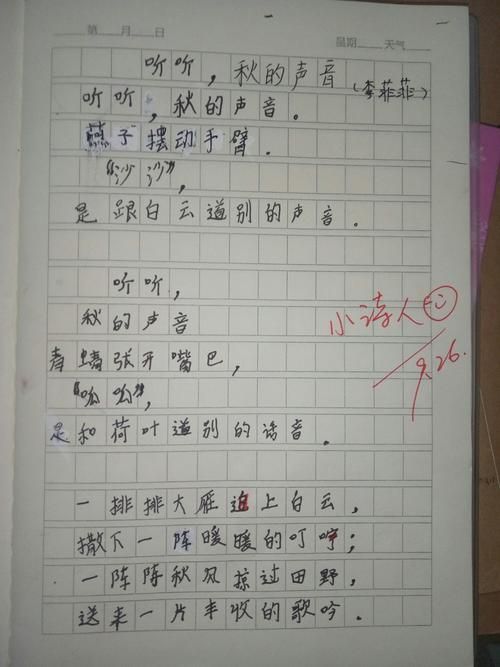 第 月 日 星期 天气
听听，秋的声音
（李菲菲）
听听，秋的声音。
燕子摆动手臂。
“沙沙”，
是跟白云道别的声音。
听听，
秋的声音
青蜻张开嘴巴，
“呦呦”，
是和荷叶道别的话音。
小诗人
9.26.
一排排大雁追上白云，
撒下一阵暖暖的叮咛；
一阵阵秋风掠过田野，
送来一片丰收的歌吟．